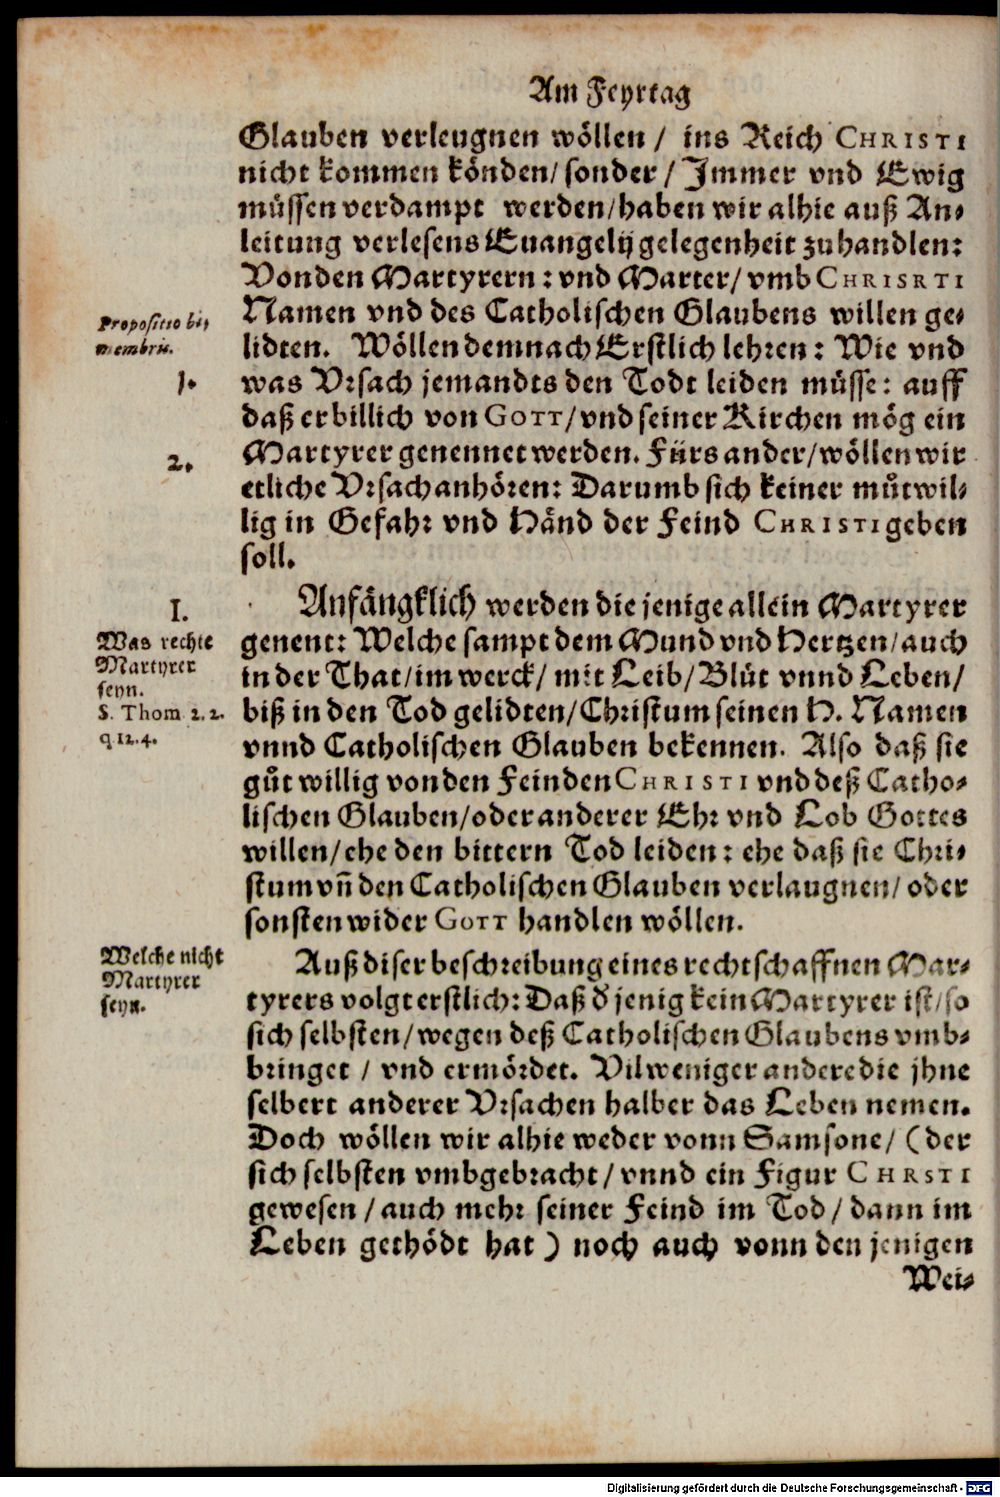 Am Feyrtag
Glauben verleugnen wöllen / ins Reich CHRISTI
nicht kommen könden/ sonder / Jmmer vnd Ewig
müssen verdampt werden/haben wir alhie auß An-
leitung verlesens Euangelij gelegenheit zuhandlen:
Von den Martyrern: vnd Marter/ vmb CHRISRTI
Propositio bi-
membris.
Namen vnd des Catholischen Glaubens willen ge-
lidten. Wöllen demnach Erstlich lehren: Wie vnd
1.
was Vrsach jemandts den Todt leiden müsse: auff
daß er billich von GOTT/ vnd seiner Kirchen mög ein
2.
Martyrer genennet werden. Fürs ander/wöllen wir
etliche Vrsach anhören: Darumb sich keiner muͦtwil-
lig in Gefahr vnd Händ der Feind CHRISTI geben
soll.
I.
Anfängklich werden die jenige allein Martyrer
Was rechte
Martyrer
seyn.
S. Thom 2. 2.
q 12. 4.
genent: Welche sampt dem Mund vnd Hertzen/auch
in der That/im werck/ mit Leib/ Bluͦt vnnd Leben/
biß in den Tod gelidten/Christum seinen H. Namen
vnnd Catholischen Glauben bekennen. Also daß sie
guͦtwillig von den Feinden CHRISTI vnd deß Catho-
lischen Glauben/oder anderer Ehr vnd Lob Gottes
willen/ehe den bittern Tod leiden: ehe daß sie Chri-
stum vñ den Catholischen Glauben verlaugnen/ oder
sonsten wider GOTT handlen wöllen.
Welche nicht
Martyrer
seyn.
Auß diser beschreibung eines rechtschaffnen Mar-
tyrers volgt erstlich: Daß d̕ jenig kein Martyrer ist/so
sich selbsten/wegen deß Catholischen Glaubens vmb-
bringet / vnd ermördet. Vilweniger andere die jhne
selbert anderer Vrsachen halber das Leben nemen.
Doch wöllen wir alhie weder vonn Samsone/ (der
sich selbsten vmbgebracht/ vnnd ein Figur CHRSTI
gewesen / auch mehr seiner Feind im Tod / dann im
Leben gethödt hat ) noch auch vonn den jenigen
Wei-
Digitalisierung gefördert durch die Deutsche Forschungsgemeinschaft - DFG